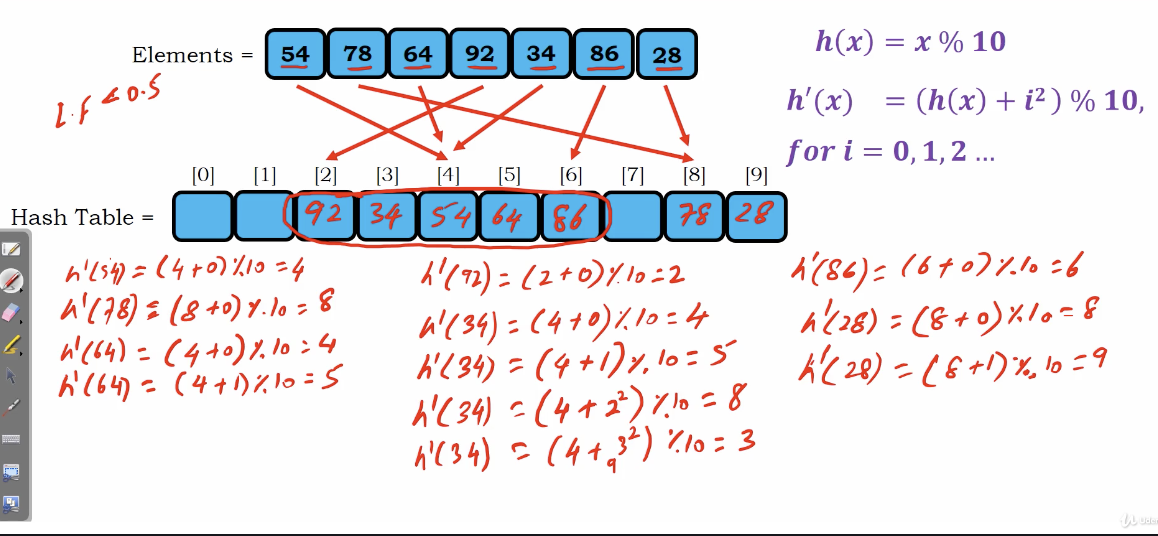 Elements = 54 78 64 92 34 86 28
h(x) = x % 10
h′(x) = (h(x) + i²) % 10,
for i = 0, 1, 2 ...
L.F < 0.5
[0] [1] [2] [3] [4] [5] [6] [7] [8] [9]
Hash Table = 92 34 54 64 86 78 28
h'(54) = (4+0)%10 = 4
h'(78) = (8+0)%10 = 8
h'(64) = (4+0)%10 = 4
h'(64) = (4+1)%10 = 5
h'(92) = (2+0)%10 = 2
h'(34) = (4+0)%10 = 4
h'(34) = (4+1)%10 = 5
h'(34) = (4+2²)%10 = 8
h'(34) = (4+3²)%10 = 3
9
h'(86) = (6+0)%10 = 6
h'(28) = (8+0)%10 = 8
h'(28) = (8+1)%10 = 9